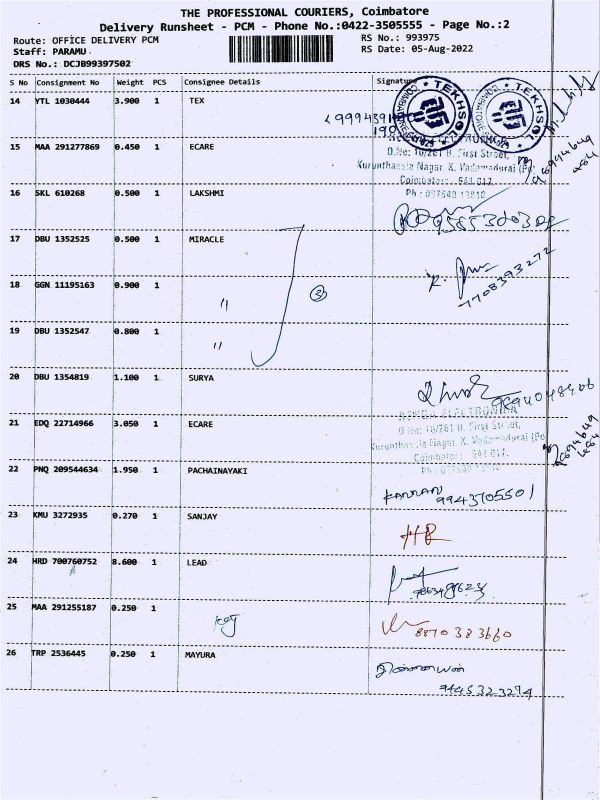 THE PROFESSIONAL COURIERS, Coimbatore
Delivery Runsheet - PCM - Phone No.:0422-3505555 - Page No.:2
Route: OFFICE DELIVERY PCM
RS No.: 993975
Staff: PARAMU
RS Date: 05-Aug-2022
DRS No.: DCJB99397502
S No Consignment No Weight PCS Consignee Details Signature
14 YTL 1030444 3.900 1 TEX
15 MAA 291277869 0.450 1 ECARE
D.No: 18/261 B. First Street,
Kurunthassla Nagar, K. Vadamadurai (Po)
Coimbatore - 641 017.
16 SKL 610268 0.500 1 LAKSHMI
17 DBU 1352525 0.500 1 MIRACLE
18 GGN 11195163 0.900 1 "
3
7708393272
19 DBU 1352547 0.800 1 "
20 DBU 1354819 1.100 1 SURYA
9894048406
21 EDQ 22714966 3.050 1 ECARE
D.No: 18/261 B. First Street,
Kurunthassla Nagar, K. Vadamadurai (Po)
Coimbatore - 641 017.
22 PNQ 209544634 1.950 1 PACHAINAYAKI
KANNAN
9943705501
23 KMU 3272935 0.270 1 SANJAY
24 HRD 700760752 8.600 1 LEAD
25 MAA 291255187 0.250 1
8870383660
26 TRP 2536445 0.250 1 MAYURA
9445323274
TEKHSOL
TEKHSOL